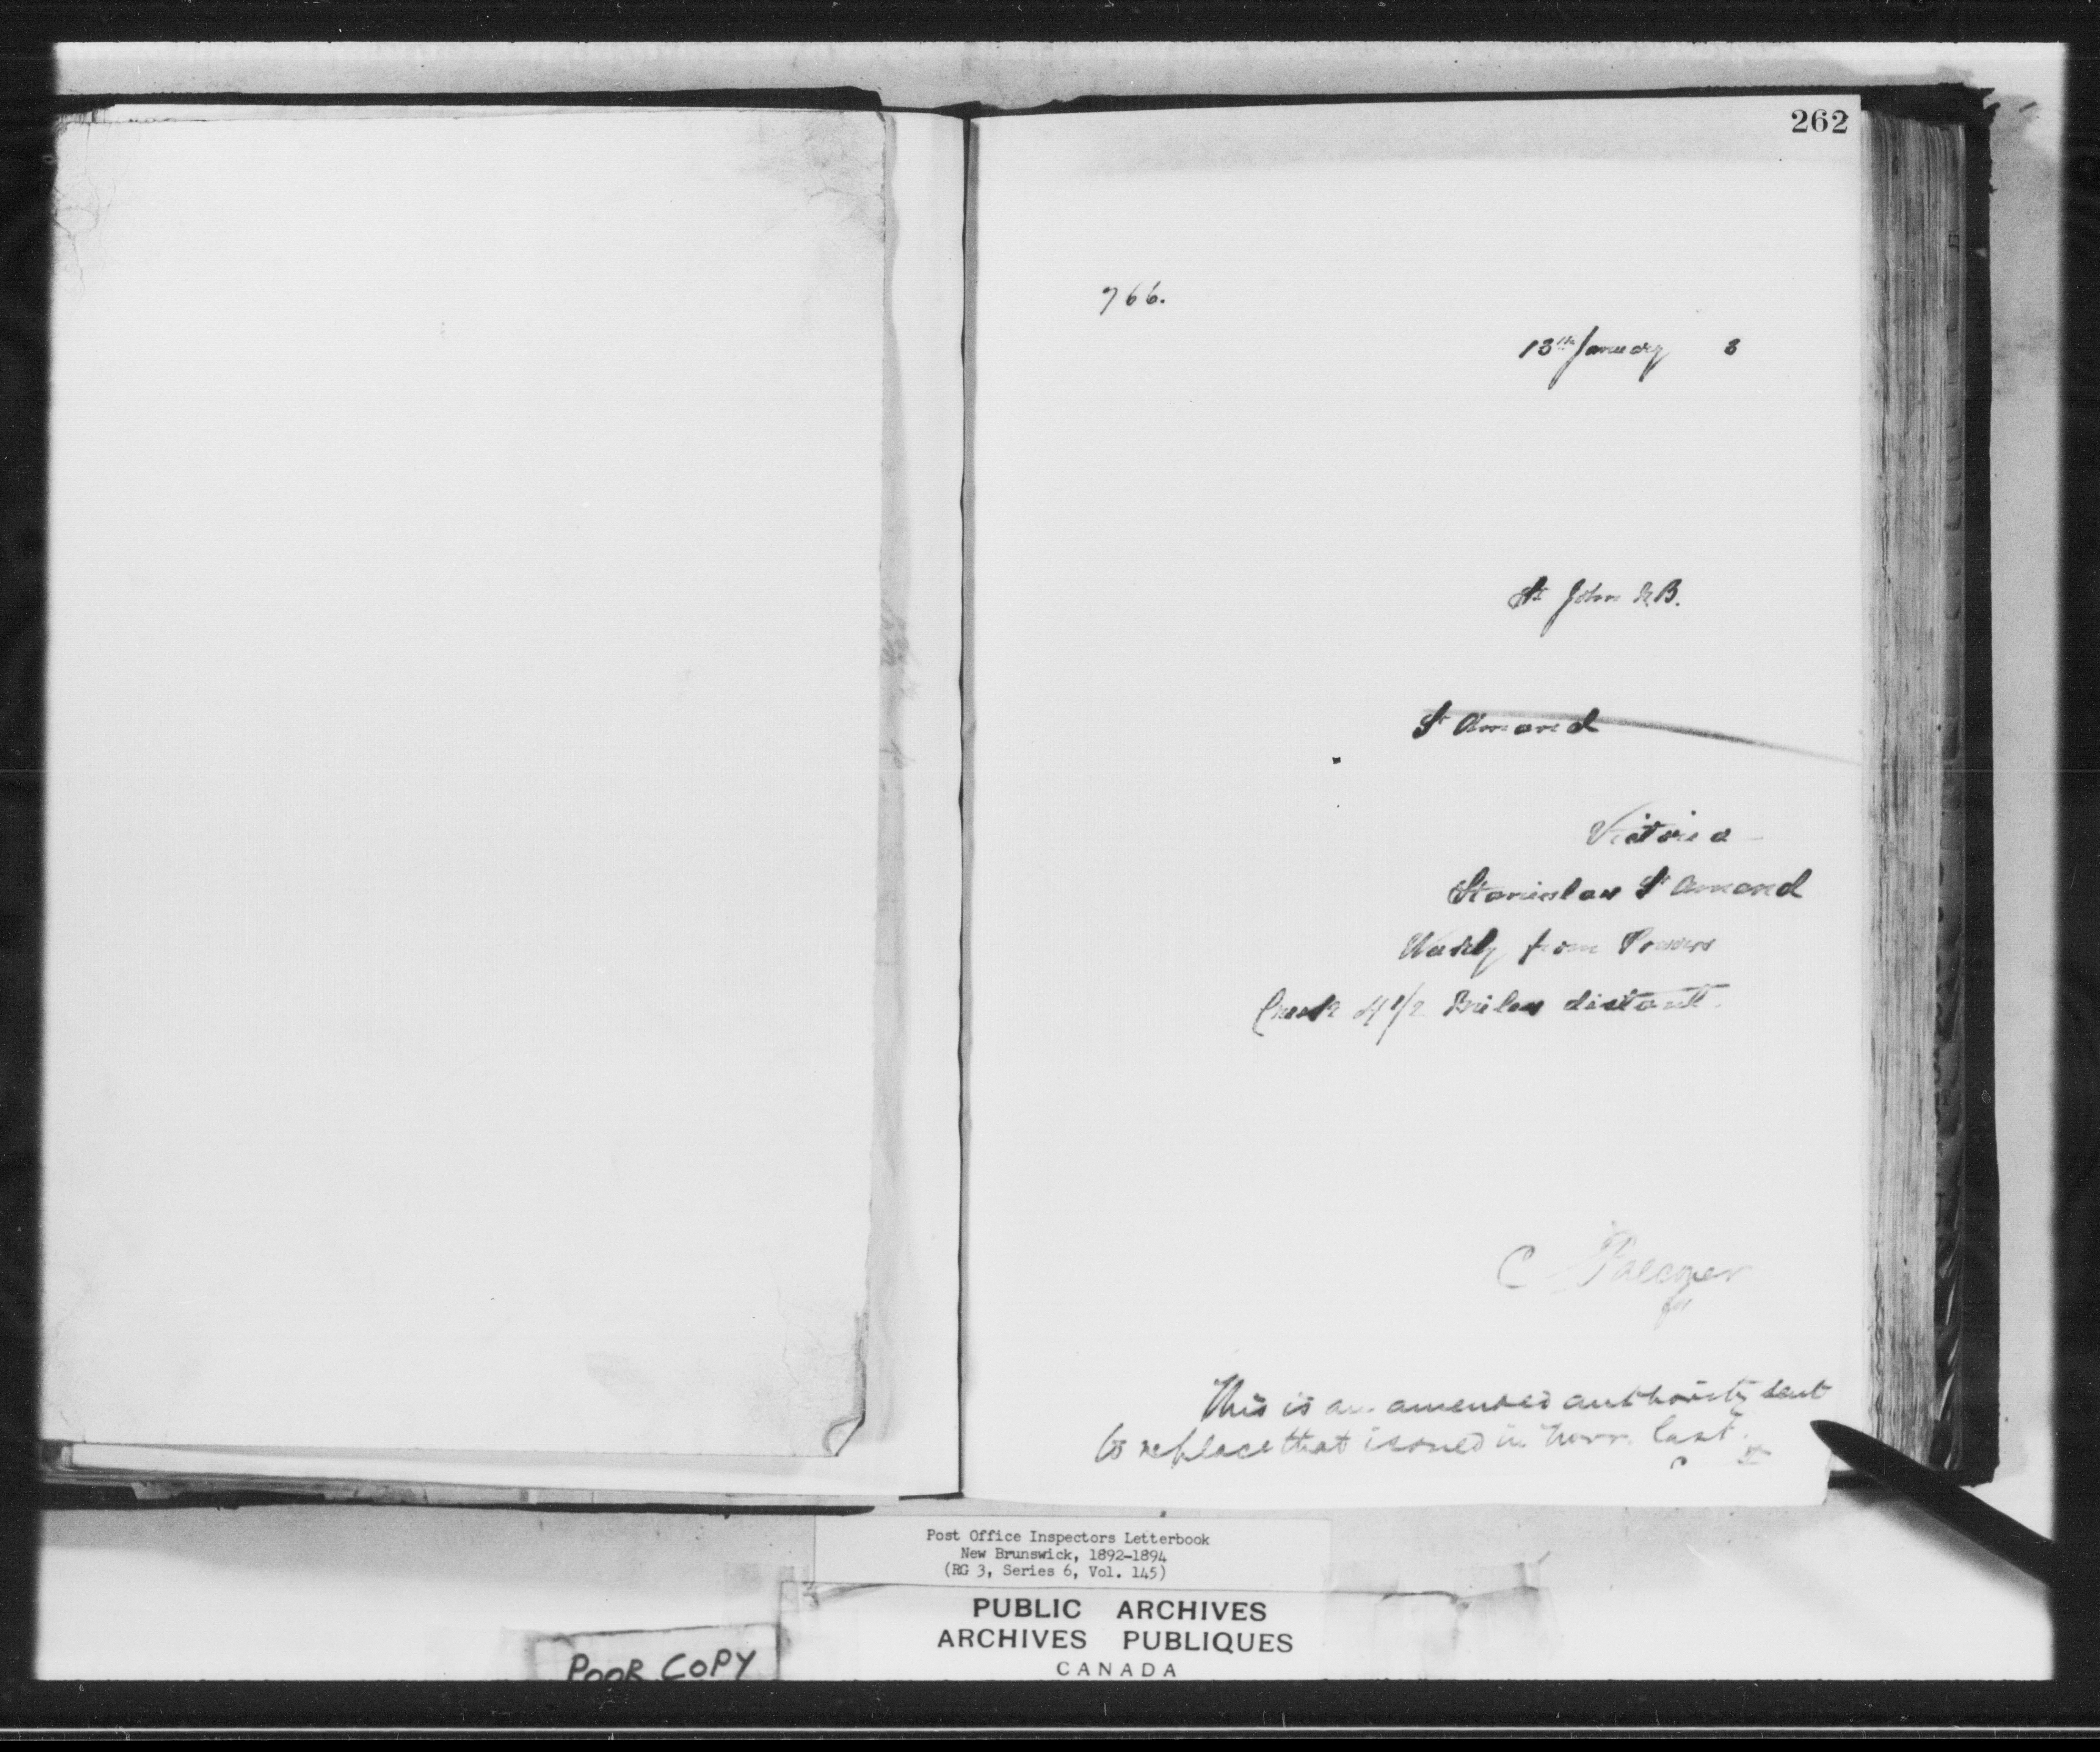 262
766.
13th January 3
St John N.B.
St Amand
Victoria
Stanislas St Amand
Weekly from Powers
Creek 4 1/2 Miles distant.
C
This is an amended authority sent
to replace that issued in Novr. last.
Post Office Inspectors Letterbook
New Brunswick, 1892-1894
(RG 3, Series 6, Vol. 145)
PUBLIC ARCHIVES
ARCHIVES PUBLIQUES
CANADA
POOR COPY